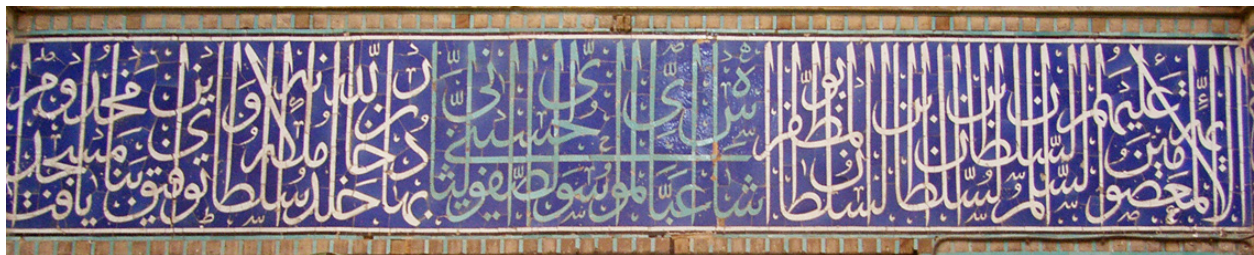 المعصومين عليهم السلم السلطان بن السلطان بن السلطان ابو المظفر شاه عباس الموسوی الصفوی الحسینی الثانی بهادر خان خلد الله ملکه و سلطانه توفیق بنای این مسجد یافت